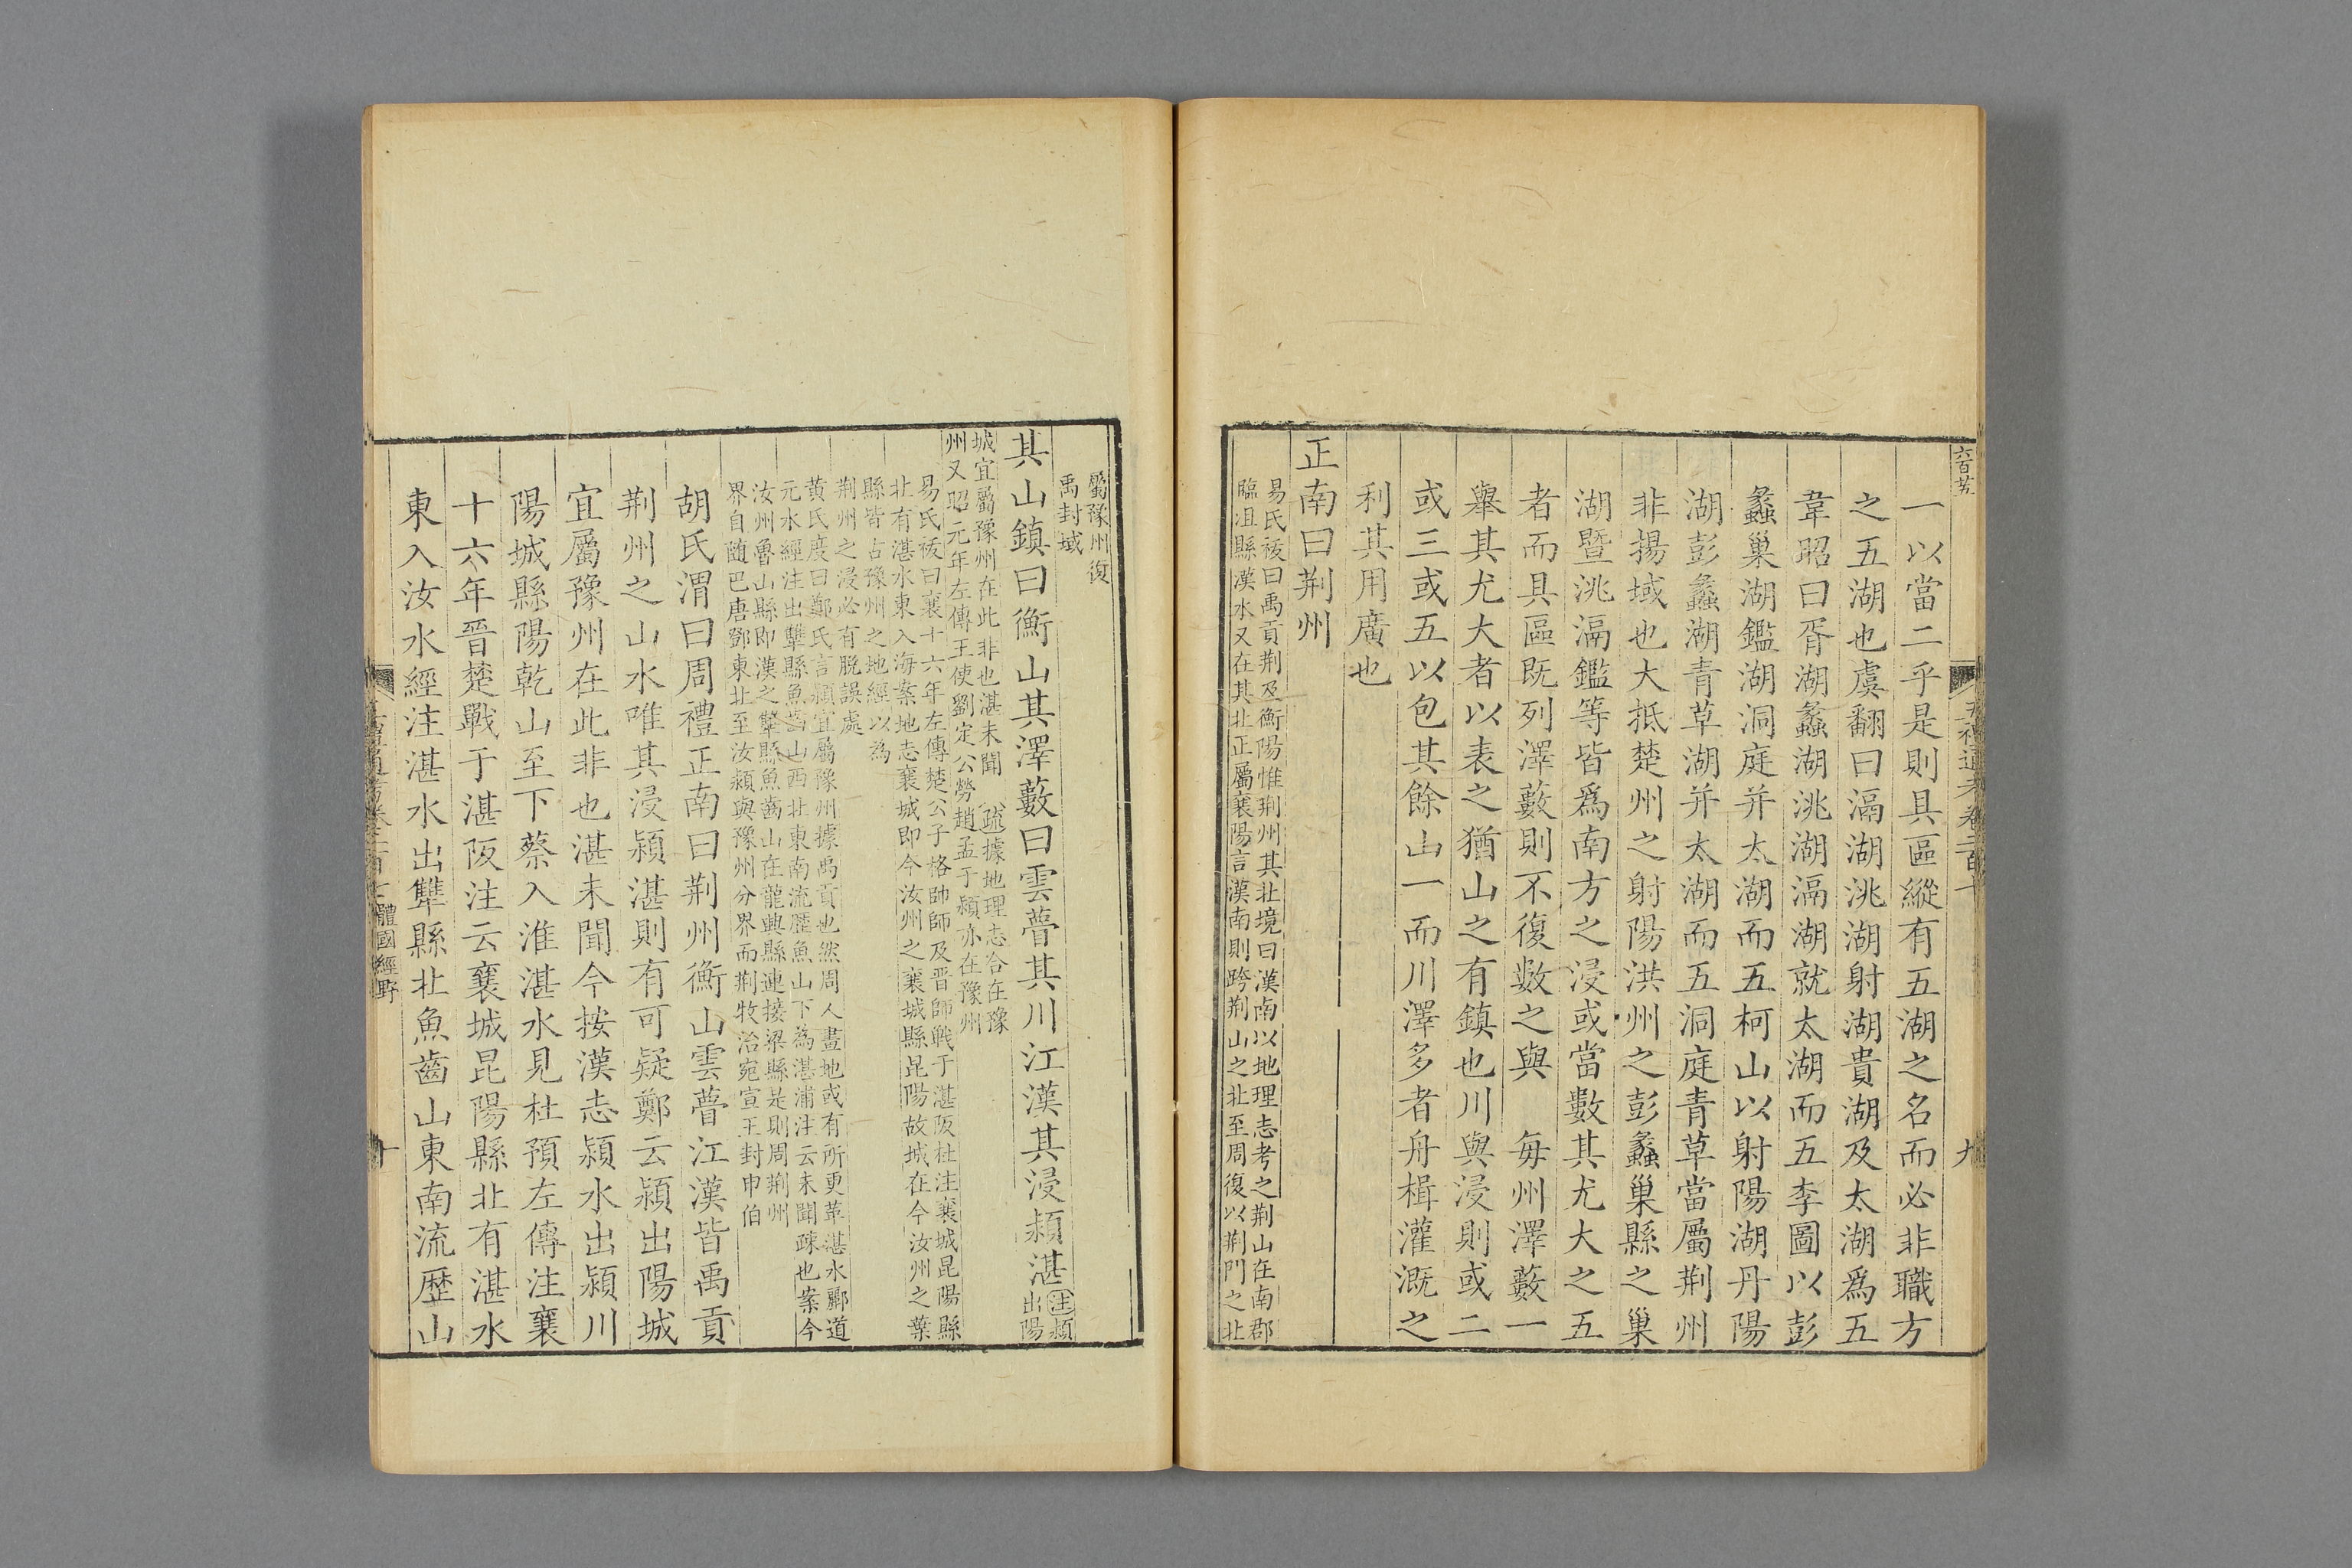 一以當二乎是則具區縱有五湖之名而必非職方
之五湖也虞翻曰滆湖洮湖射湖貴湖及太湖爲五
韋昭曰胥湖蠡湖洮湖滆湖就太湖而五李圖以彭
蠡巢湖鑑湖洞庭并太湖而五柯山以射陽湖丹陽
湖彭蠡湖青草湖并太湖而五洞庭青草當屬荆州
非揚域也大抵楚州之射陽洪州之彭蠡巢縣之巢
湖暨洮滆鑑等皆爲南方之浸或當數其尤大之五
者而具區既列澤藪則不復數之與　每州澤藪一
舉其尤大者以表之猶山之有鎮也川與浸則或二
或三或五以包其餘山一而川澤多者舟楫灌溉之
利其用廣也
正南曰荆州
易氏祓曰禹貢荆及衡陽惟荆州其北境曰漢南以地理志考之荆山在南郡
臨沮縣漢水又在其北正屬襄陽言漢南則跨荆山之北至周復以荆門之北
屬豫州復
禹封域
其山鎮曰衡山其澤藪曰雲瞢其川江漢其浸潁湛
注潁
出陽
城宜屬豫州在此非也湛未聞　疏據地理志合在豫
州又昭元年左傳王使劉定公勞趙孟于潁亦在豫州
易氏祓曰襄十六年左傳楚公子格帥師及晋師戰于湛阪杜注襄城昆陽縣
北有湛水東入海案地志襄城即今汝州之襄城縣昆陽故城在今汝州之葉
縣皆占豫州之地經以爲
荆州之浸必有脱誤處
黄氏度曰鄭氏言潁宜屬豫州據禹貢也然周人畫地或有所更革湛水酈道
元水經注出犨縣魚齒山西北東南流歷魚山下爲湛浦注云未聞疎也案今
汝州魯山縣即漢之犨縣魚齒山在龍興縣連接梁縣是則周荆州
界自隨巴唐鄧東北至汝潁與豫州分界而荆牧治宛宣王封申伯
胡氏渭曰周禮正南曰荆州衡山雲瞢江漢皆禹貢
荆州之山水唯其浸潁湛則有可疑鄭云潁出陽城
宜屬豫州在此非也湛未聞今按漢志潁水出潁川
陽城縣陽乾山至下蔡入淮湛水見杜預左傳注襄
十六年晉楚戰于湛阪注云襄城昆陽縣北有湛水
東入汝水經注湛水出犨縣北魚齒山東南流歷山
體國經野
十